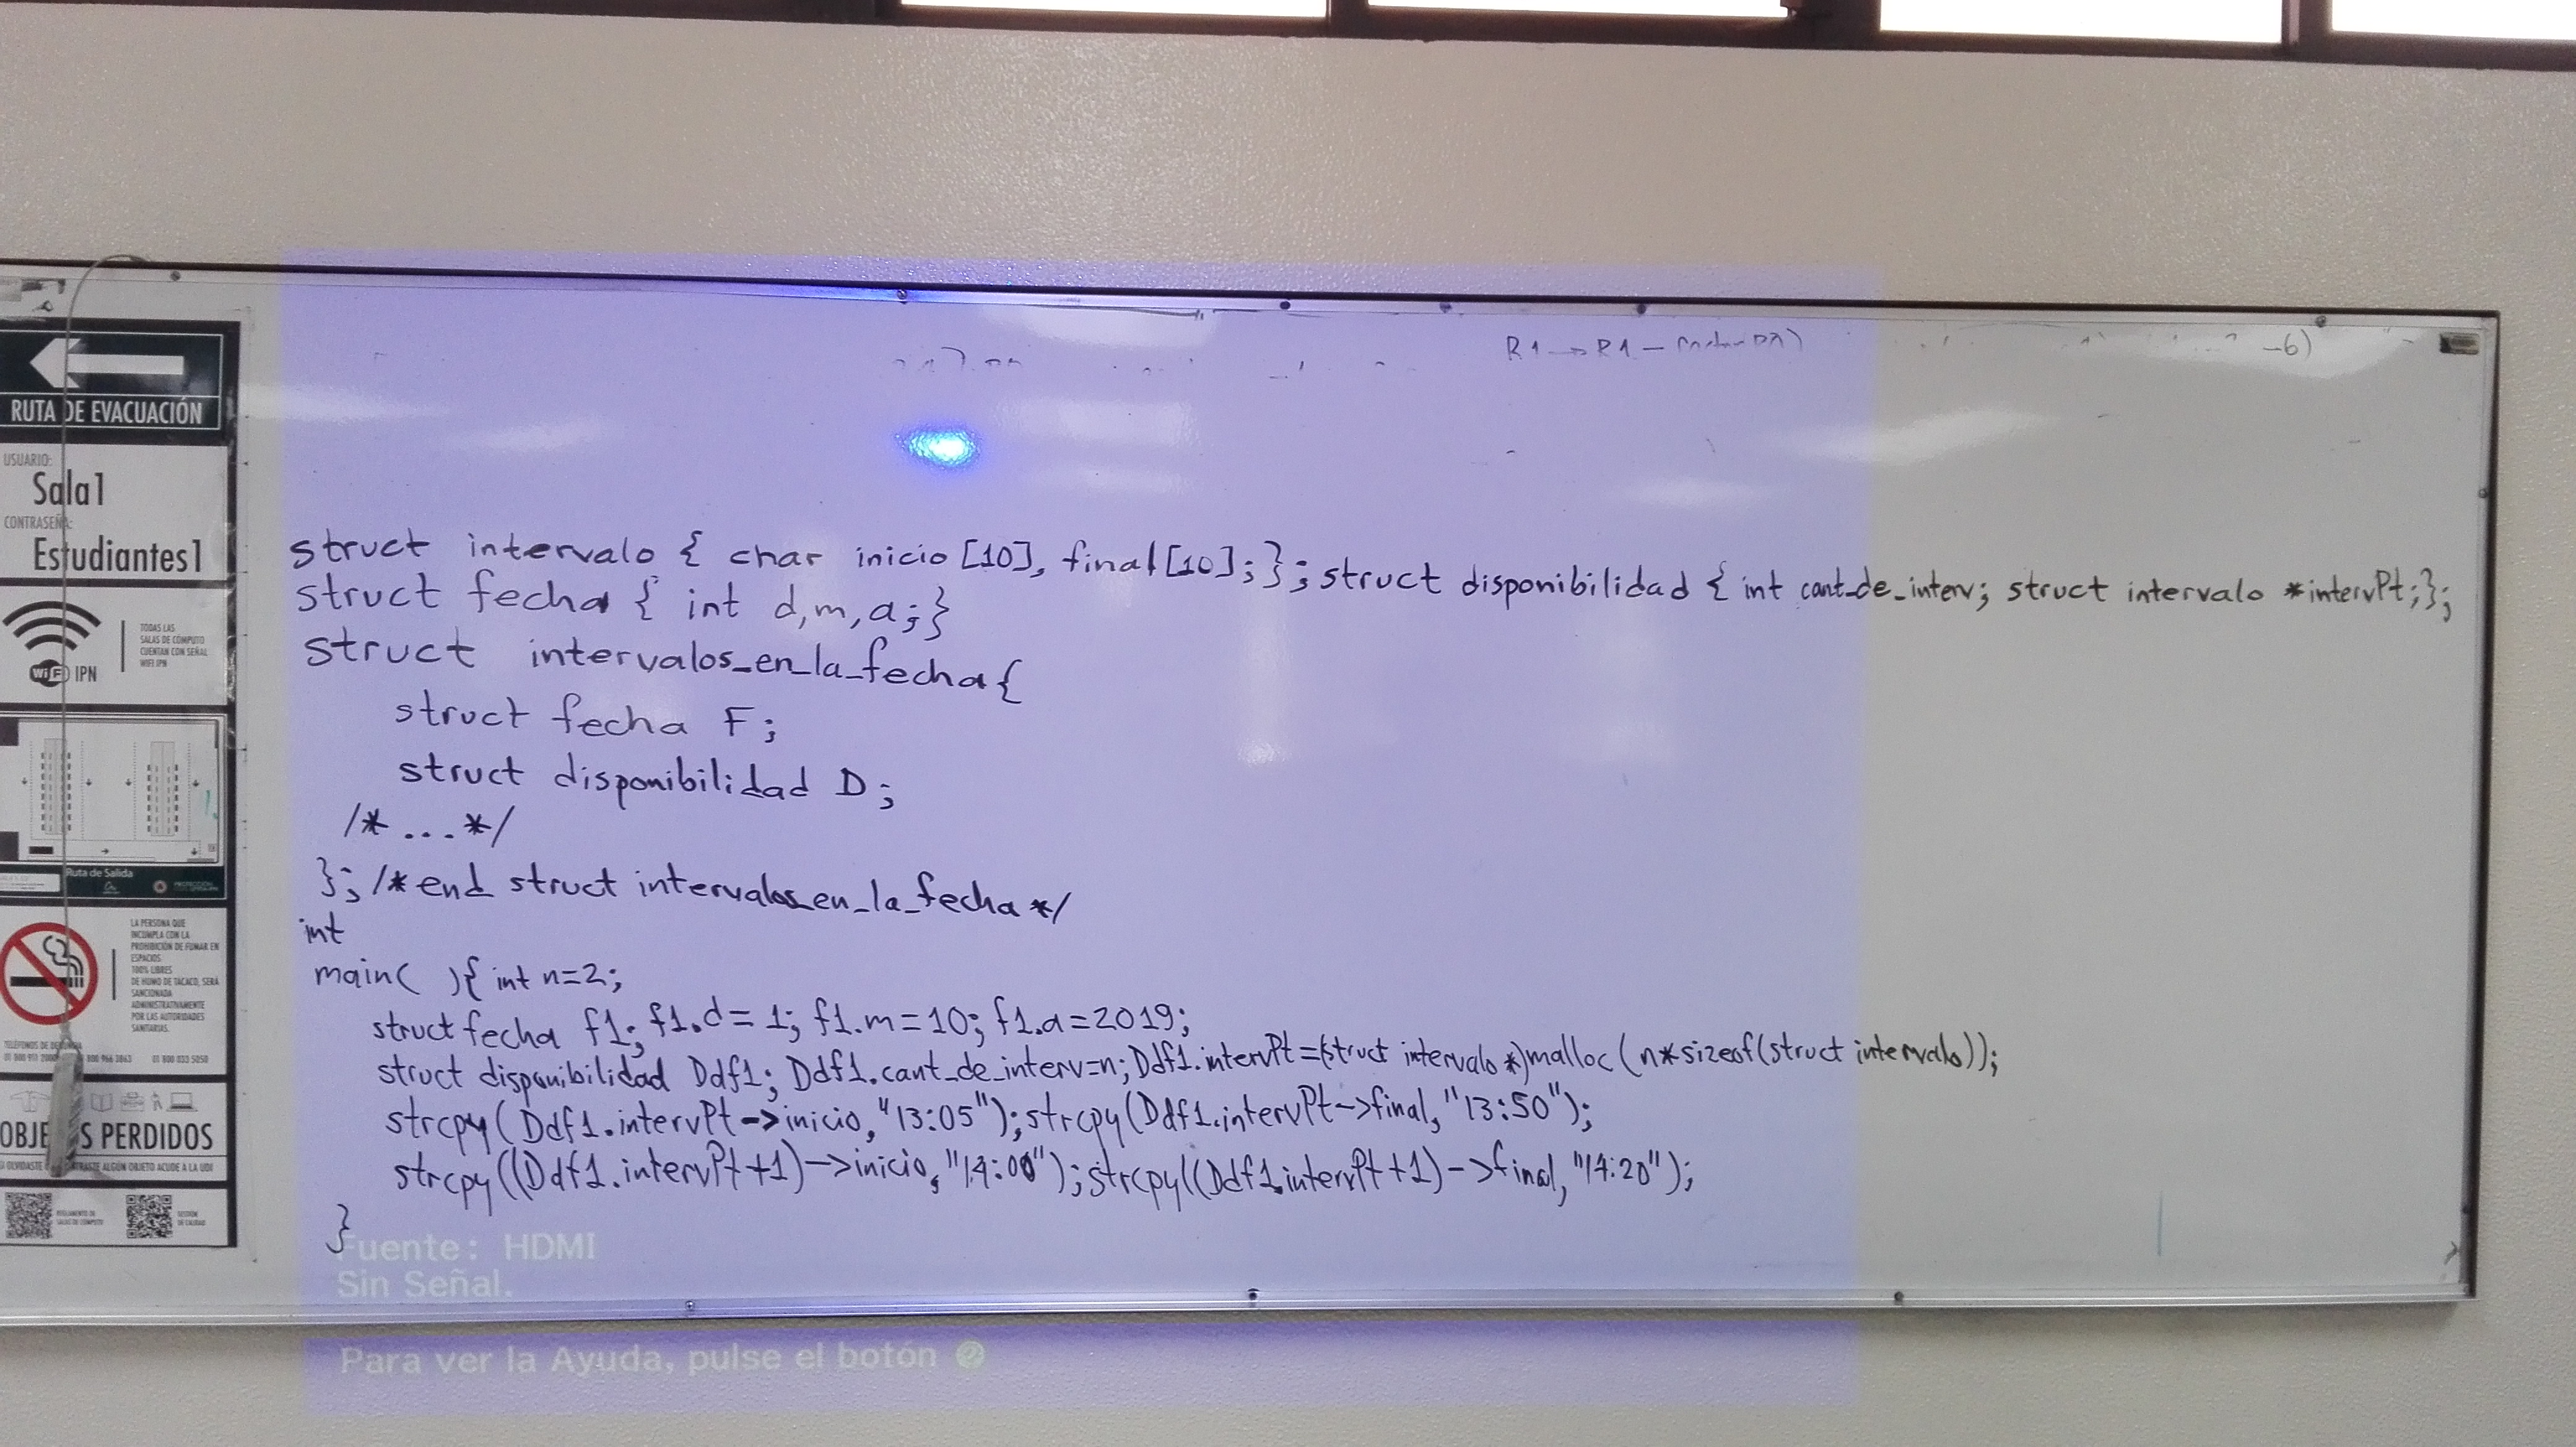 R1→R1-
-6)
RUTA DE EVACUACIÓN
USUARIO:
Sala1
CONTRASEÑA:
Estudiantes1
TODAS LAS
SALAS DE CÓMPUTO
CUENTAN CON SEÑAL
WIFI IPN
WiFi IPN
Ruta de Salida
LA PERSONA QUE
INCUMPLA CON LA
PROHIBICIÓN DE FUMAR EN
ESPACIOS
100% LIBRES
DE HUMO DE TABACO, SERÁ
SANCIONADA
ADMINISTRATIVAMENTE
POR LAS AUTORIDADES
SANITARIAS.
01 800 033 5050
OBJE S PERDIDOS
struct intervalo { char inicio [10], final [10];}; struct disponibilidad { int cant_de_interv; struct intervalo *intervPt;};
struct fecha { int d,m,a;}
struct intervalos_en_la_fecha{
struct fecha F;
struct disponibilidad D;
/* ... */
}; /* end struct intervalos_en_la_fecha */
int
main( ){ int n=2;
struct fecha f1; f1.d = 1; f1.m=10; f1.a=2019;
struct disponibilidad Ddf1; Ddf1.cant_de_interv=n; Ddf1.intervPt=(struct intervalo *)malloc(n*sizeof(struct intervalo));
strcpy(Ddf1.intervPt->inicio,"13:05");strcpy(Ddf1.intervPt->final,"13:50");
strcpy((Ddf1.intervPt+1)->inicio,"14:00");strcpy((Ddf1.intervPt+1)->final,"14:20");
}
Fuente: HDMI
Sin Señal.
Para ver la Ayuda, pulse el botón